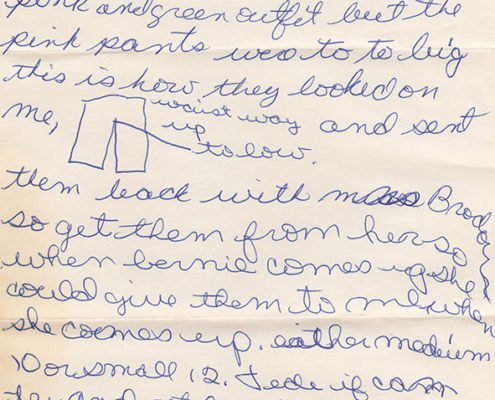 pink and green outfit but the
pink pants was to to big
this is how they looked on
me, waist way and sent
up
to low.
them back with Brody
so get them from her so
when bernie comes up she
could give them to me when
she comes up. either medium
10 or small 12.